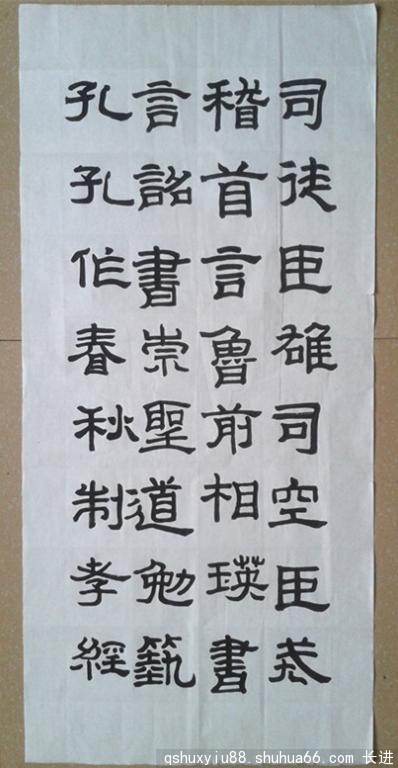 司徒臣雄司空臣戒
稽首言魯前相瑛書
言詔書崇聖道勉藝
孔孔作春秋制孝經
qshuxyju88.shuhua66.com 长进